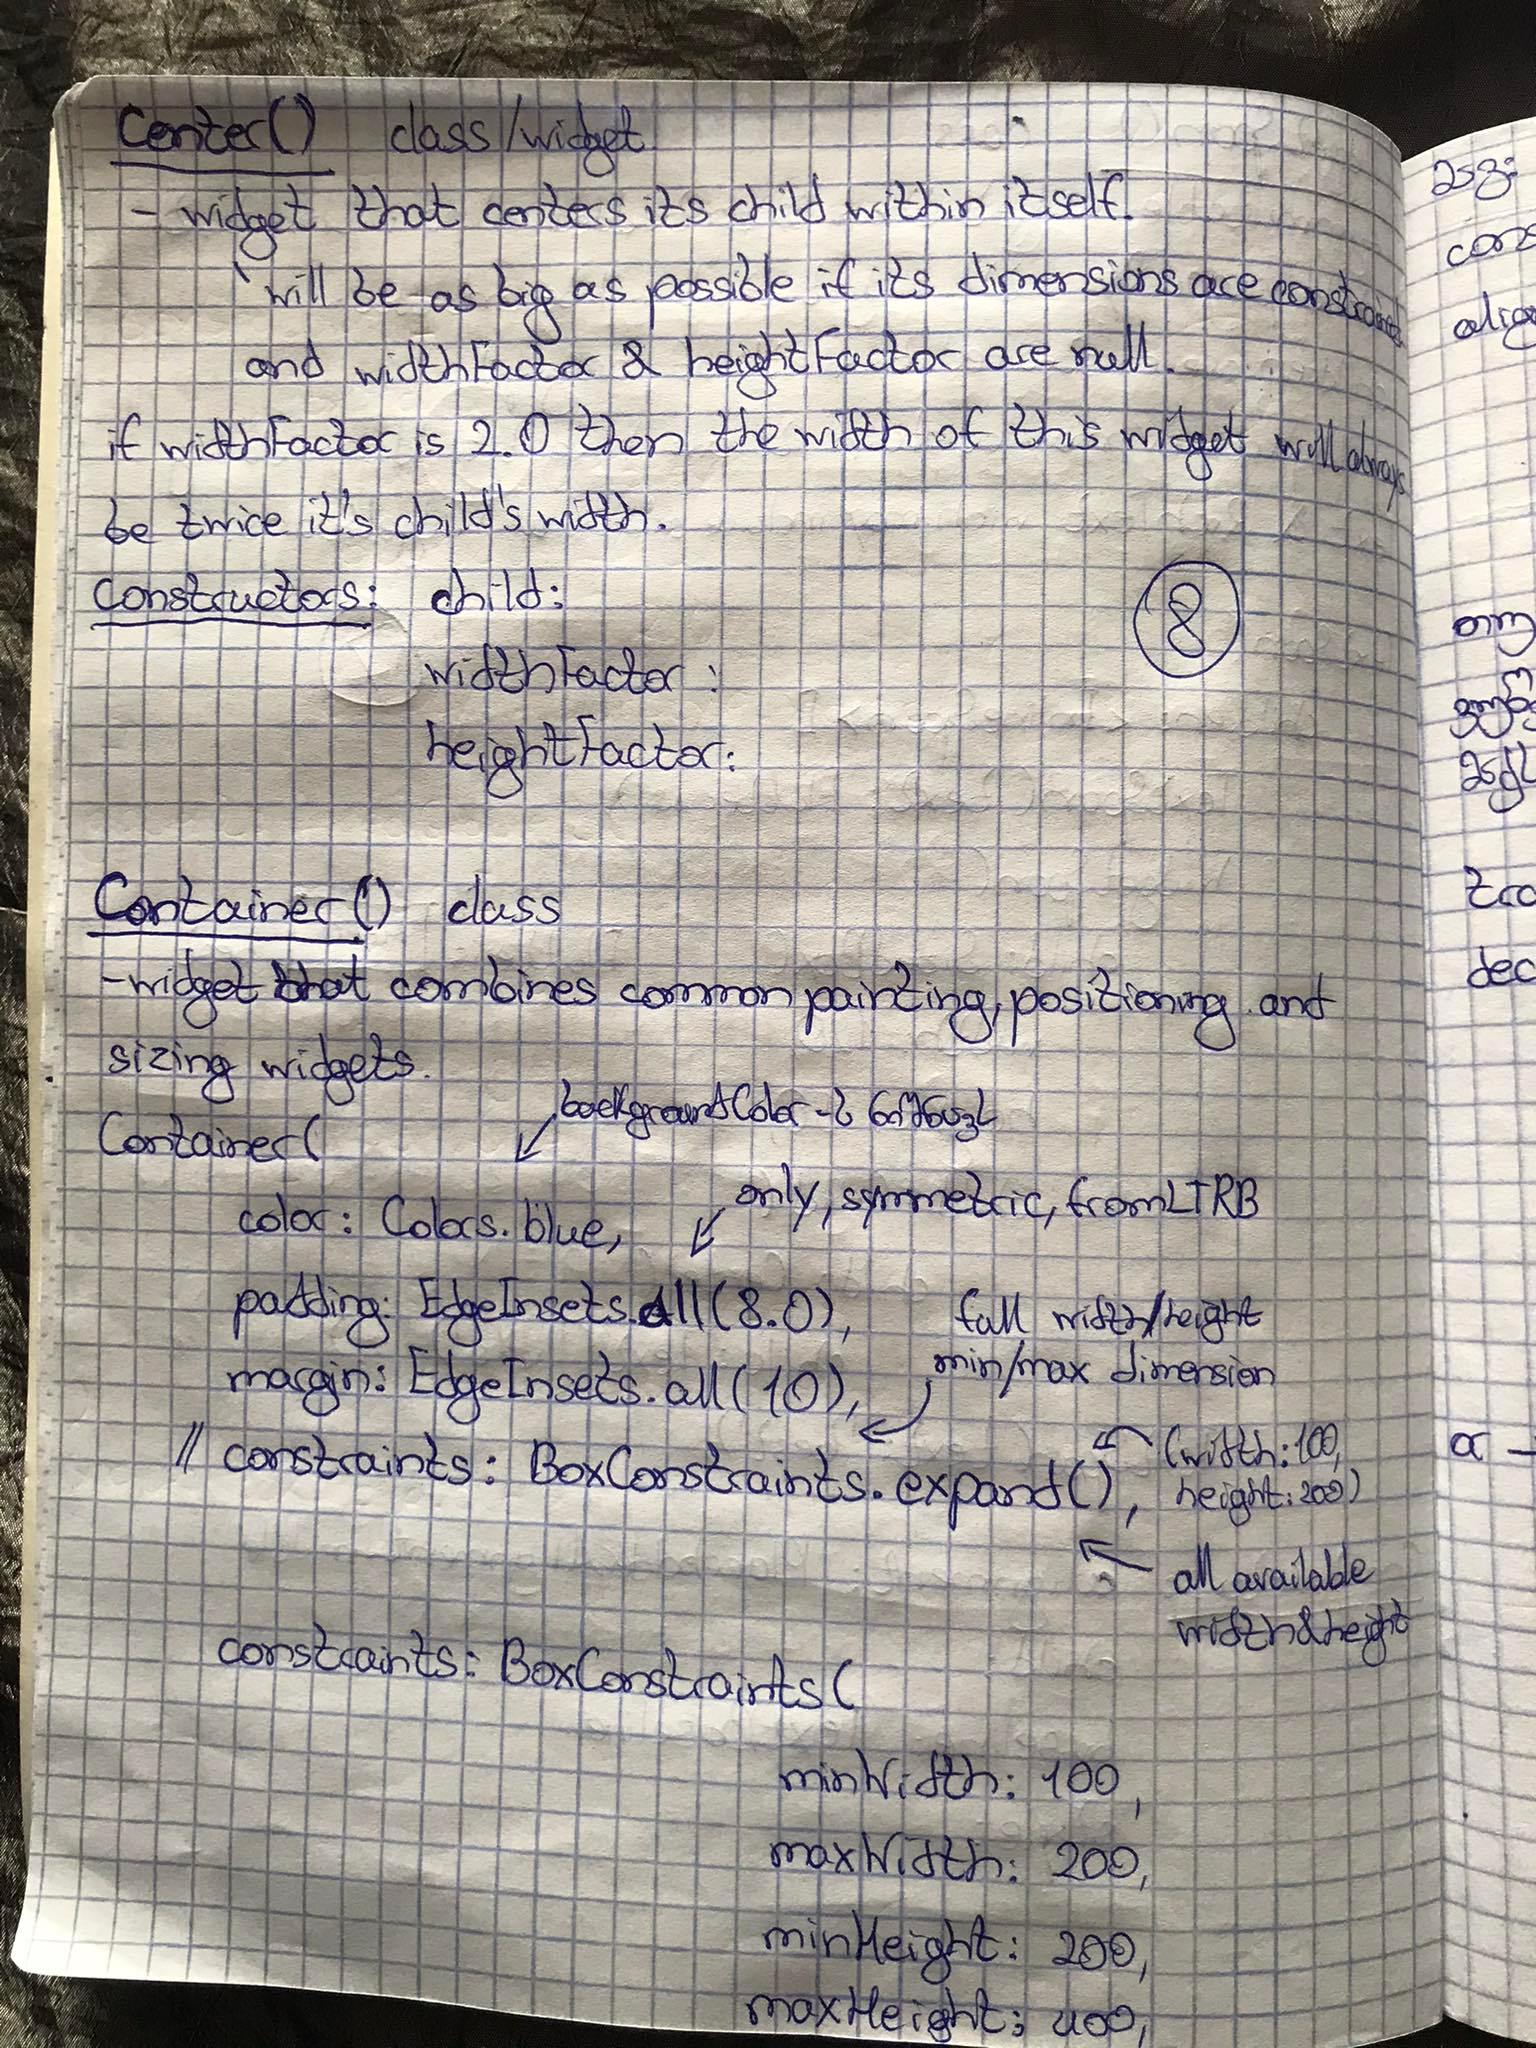 Center() class/widget
- widget that centers its child within itself.
will be as big as possible if its dimensions are constrained
and widthFactor & heightFactor are null.
if widthFactor is 2.0 then the width of this widget will always
be twice it's child's width.
constructors: child:
8
widthFactor:
heightFactor:
Container() class
-widget that combines common painting, positioning and
sizing widgets.
backgroundColor-ს ნიშნავს
Container(
only, symmetric, fromLTRB
color: Colors.blue,
padding: EdgeInsets.all(8.0),
full width/height
min/max dimension
margin: EdgeInsets.all(10),
// constraints: BoxConstraints.expand(),
(width:100,
height:200)
all available
width&height
constraints: BoxConstraints(
minWidth: 100,
maxWidth: 200,
minHeight: 200,
maxHeight: 400,
cons
alig
tra
dec